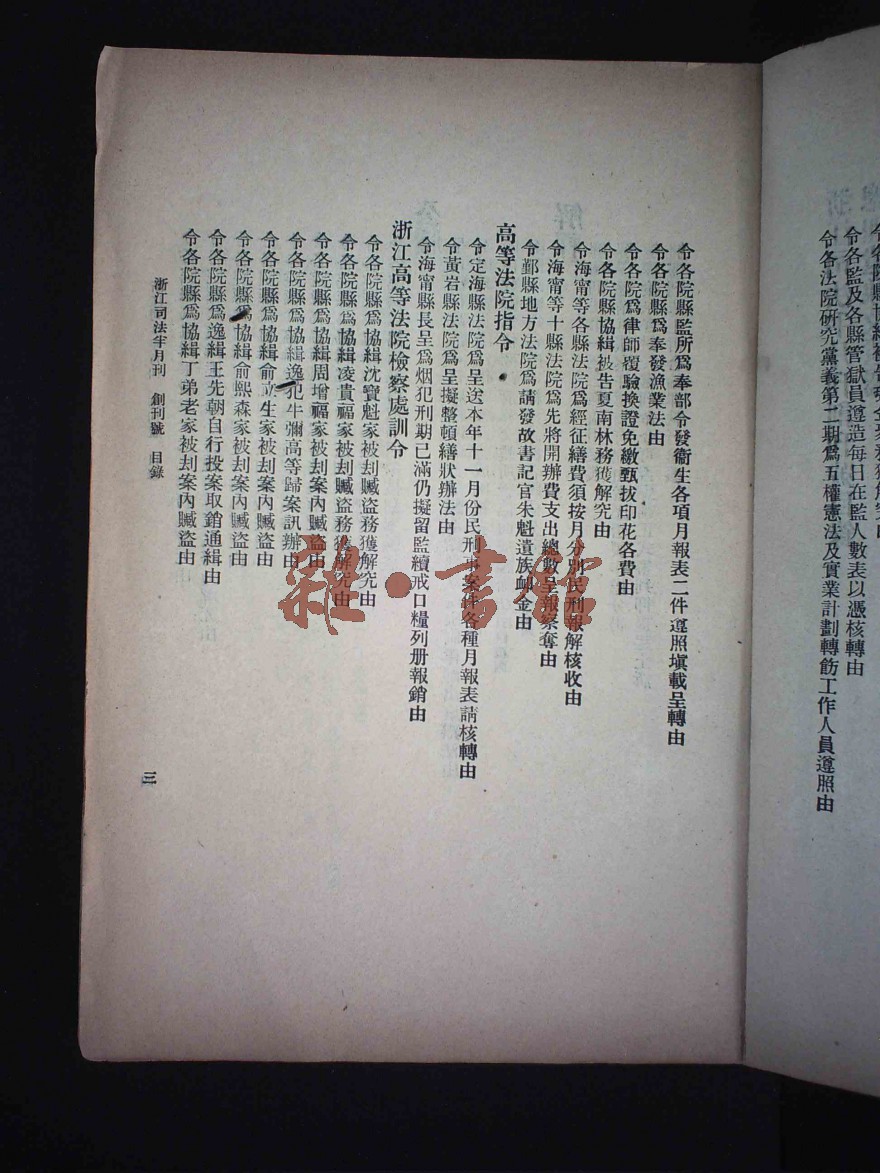 令各監及各縣管獄員遵造每日在監人數表以憑核轉由
令各法院研究黨義第二期爲五權憲法及實業計劃轉飭工作人員遵照由
令各院縣監所爲奉部令發衞生各項月報表二件遵照塡載呈轉由
令各院縣爲奉發漁業法由
令各院爲律師覆驗換證免繳甄拔印花各費由
令各院縣協緝被告夏南林務獲解究由
令海甯等各縣法院爲經征繕費須按月分別民刑報解核收由
令海甯等十縣法院爲先將開辦費支出總數呈報察奪由
令鄞縣地方法院爲請發故書記官朱魁遺族卹金由
高等法院指令
令定海縣法院爲呈送本年十一月份民刑事案件各種月報表請核轉由
令黃岩縣法院爲呈擬整頓繕狀辦法由
令海甯縣長呈爲烟犯刑期已滿仍擬留監續戒口糧列册報銷由
浙江高等法院檢察處訓令
令各院縣爲協緝沈寶魁家被刦贓盜務獲解究由
令各院縣爲協緝凌貴福家被刦案內贓盜務獲解究由
令各院縣爲協緝周增福家被刦案內贓盜由
令各院縣爲協緝逸犯牛彌高等歸案訊辦由
令各院縣爲協緝俞 生家被刦案內贓盜由
令各院縣爲協緝俞熙森家被刦案內贓盜由
令各院縣爲逸緝王先朝自行投案取銷通緝由
令各院縣爲協緝丁弟老家被刦案內贓盜由
浙江司法半月刊 創刊號 目錄
三
雜·書館